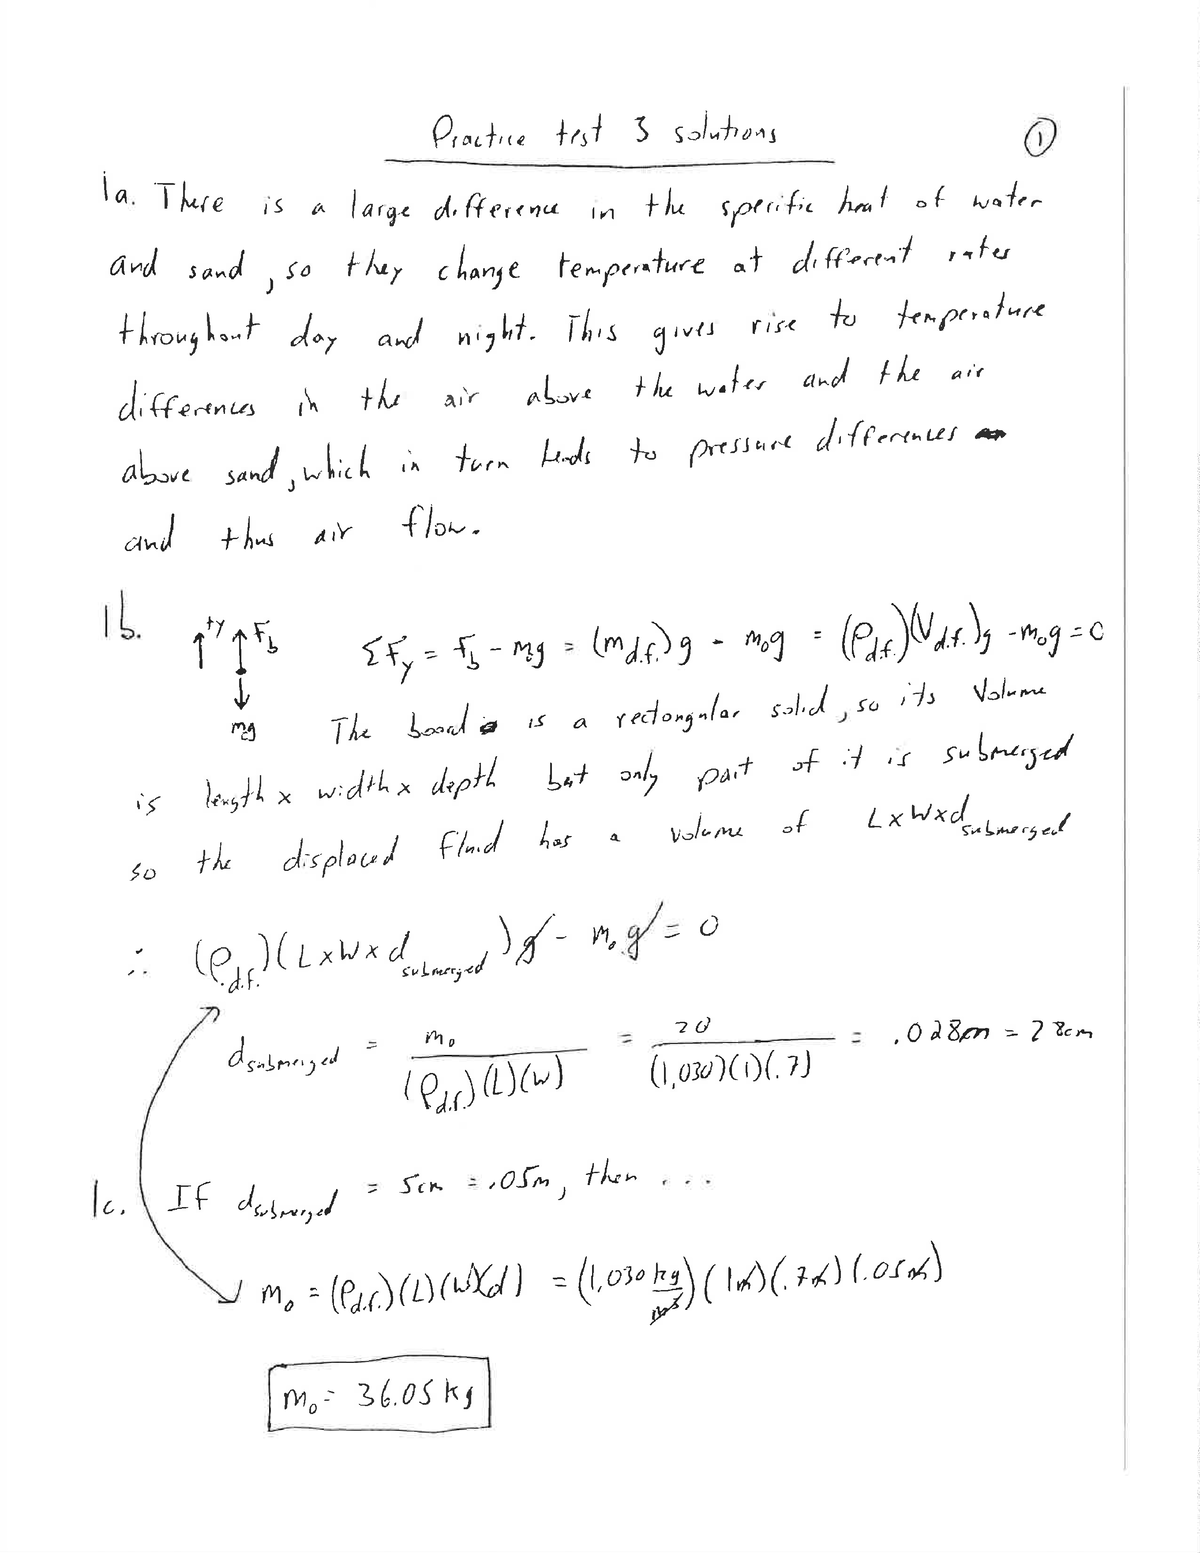 Practice test 3 solutions
①
1a. There is a large difference in the specific heat of water
and sand, so they change temperature at different rates
throughout day and night. This gives rise to temperature
differences in the air above the water and the air
above sand, which in turn leads to pressure differences
and thus air flow.
1b. +y F_b ΣF_y = F_b - mg = (m_d.f.)g - m_og = (ρ_d.f.)(V_d.f.)g - m_og = 0
mg The board is a rectangular solid, so its volume
is length x width x depth but only part of it is submerged
so the displaced fluid has a volume of LxWxd_submerged
∴ (ρ_d.f.)(LxWxd_submerged)g - m_og = 0
d_submerged = m_o / (ρ_d.f.)(L)(w) = 20 / (1,030)(1)(.7) = .028m = 28cm
1c. If d_submerged = 5cm = .05m, then ...
m_o = (ρ_d.f.)(L)(w)(d) = (1,030 kg/m³)(1m)(.7m)(.05m)
m_o = 36.05 kg